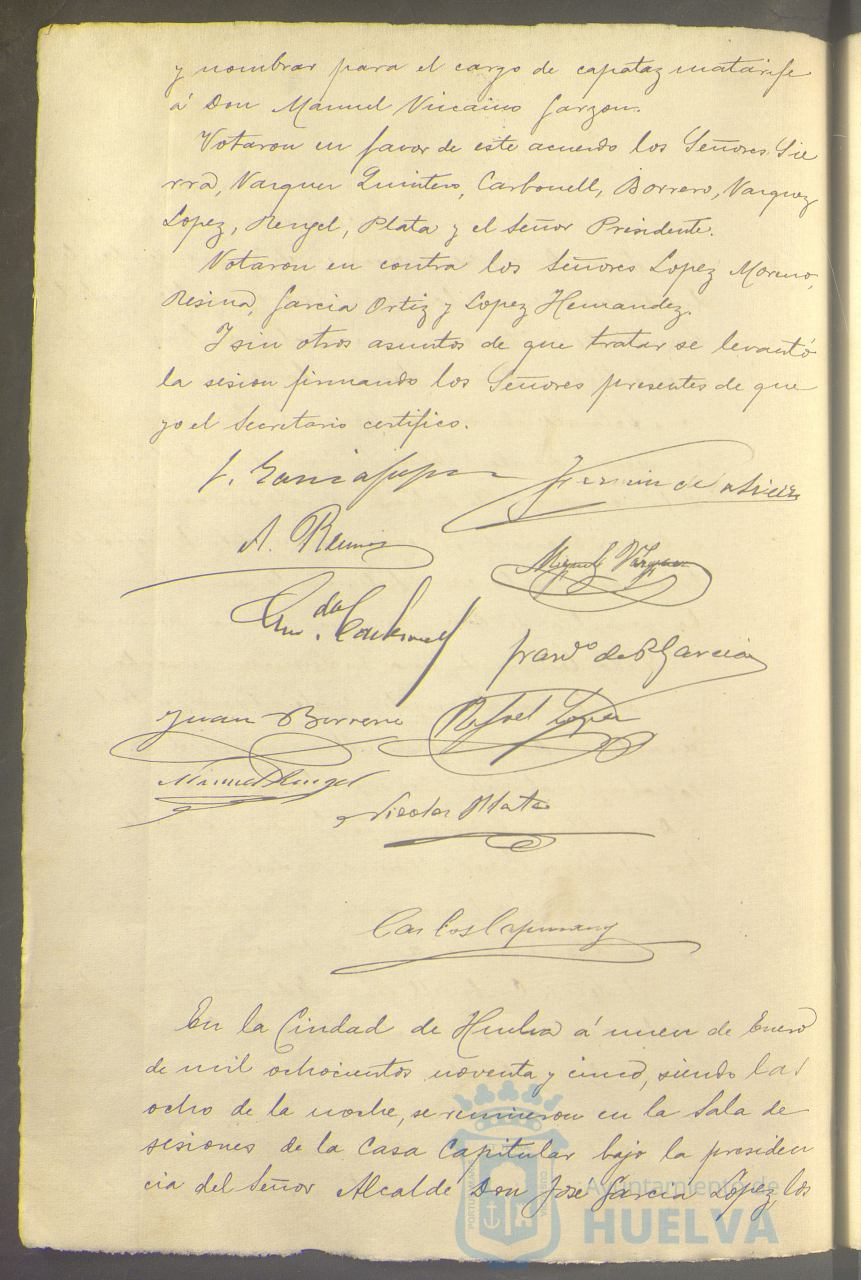 y nombrar para el cargo de capataz matarife
á Don Manuel Vizcaino Garzon.
Votaron en favor de este acuerdo los Señores Sie
rra, Vazquez Quintero, Carbonell, Borrero, Vazquez
Lopez, Rengel, Plata y el Señor Presidente.
Votaron en contra los Señores Lopez Moreno,
Resina, Garcia Ortiz y Lopez Hernandez.
Y sin otros asuntos de que tratar se levantó
la sesion firmando los Señores presentes de que
yo el Secretario certifico.
J. Garcia Lopez
Fermin de la Sierra
A.
Miguel Vazquez
Carbonell
Franco de P Garcia
Juan Borrero
Rafael Lopez
Manuel Rengel
Nicolas Plata
Carlos
En la Ciudad de Huelva á nueve de Enero
de mil ochocientos noventa y cinco, siendo las
ocho de la noche, se reunieron en la Sala de
sesiones de la Casa Capitular bajo la presiden
cia del Señor Alcalde Don José Garcia Lopez, los
Ayuntamiento de
HUELVA